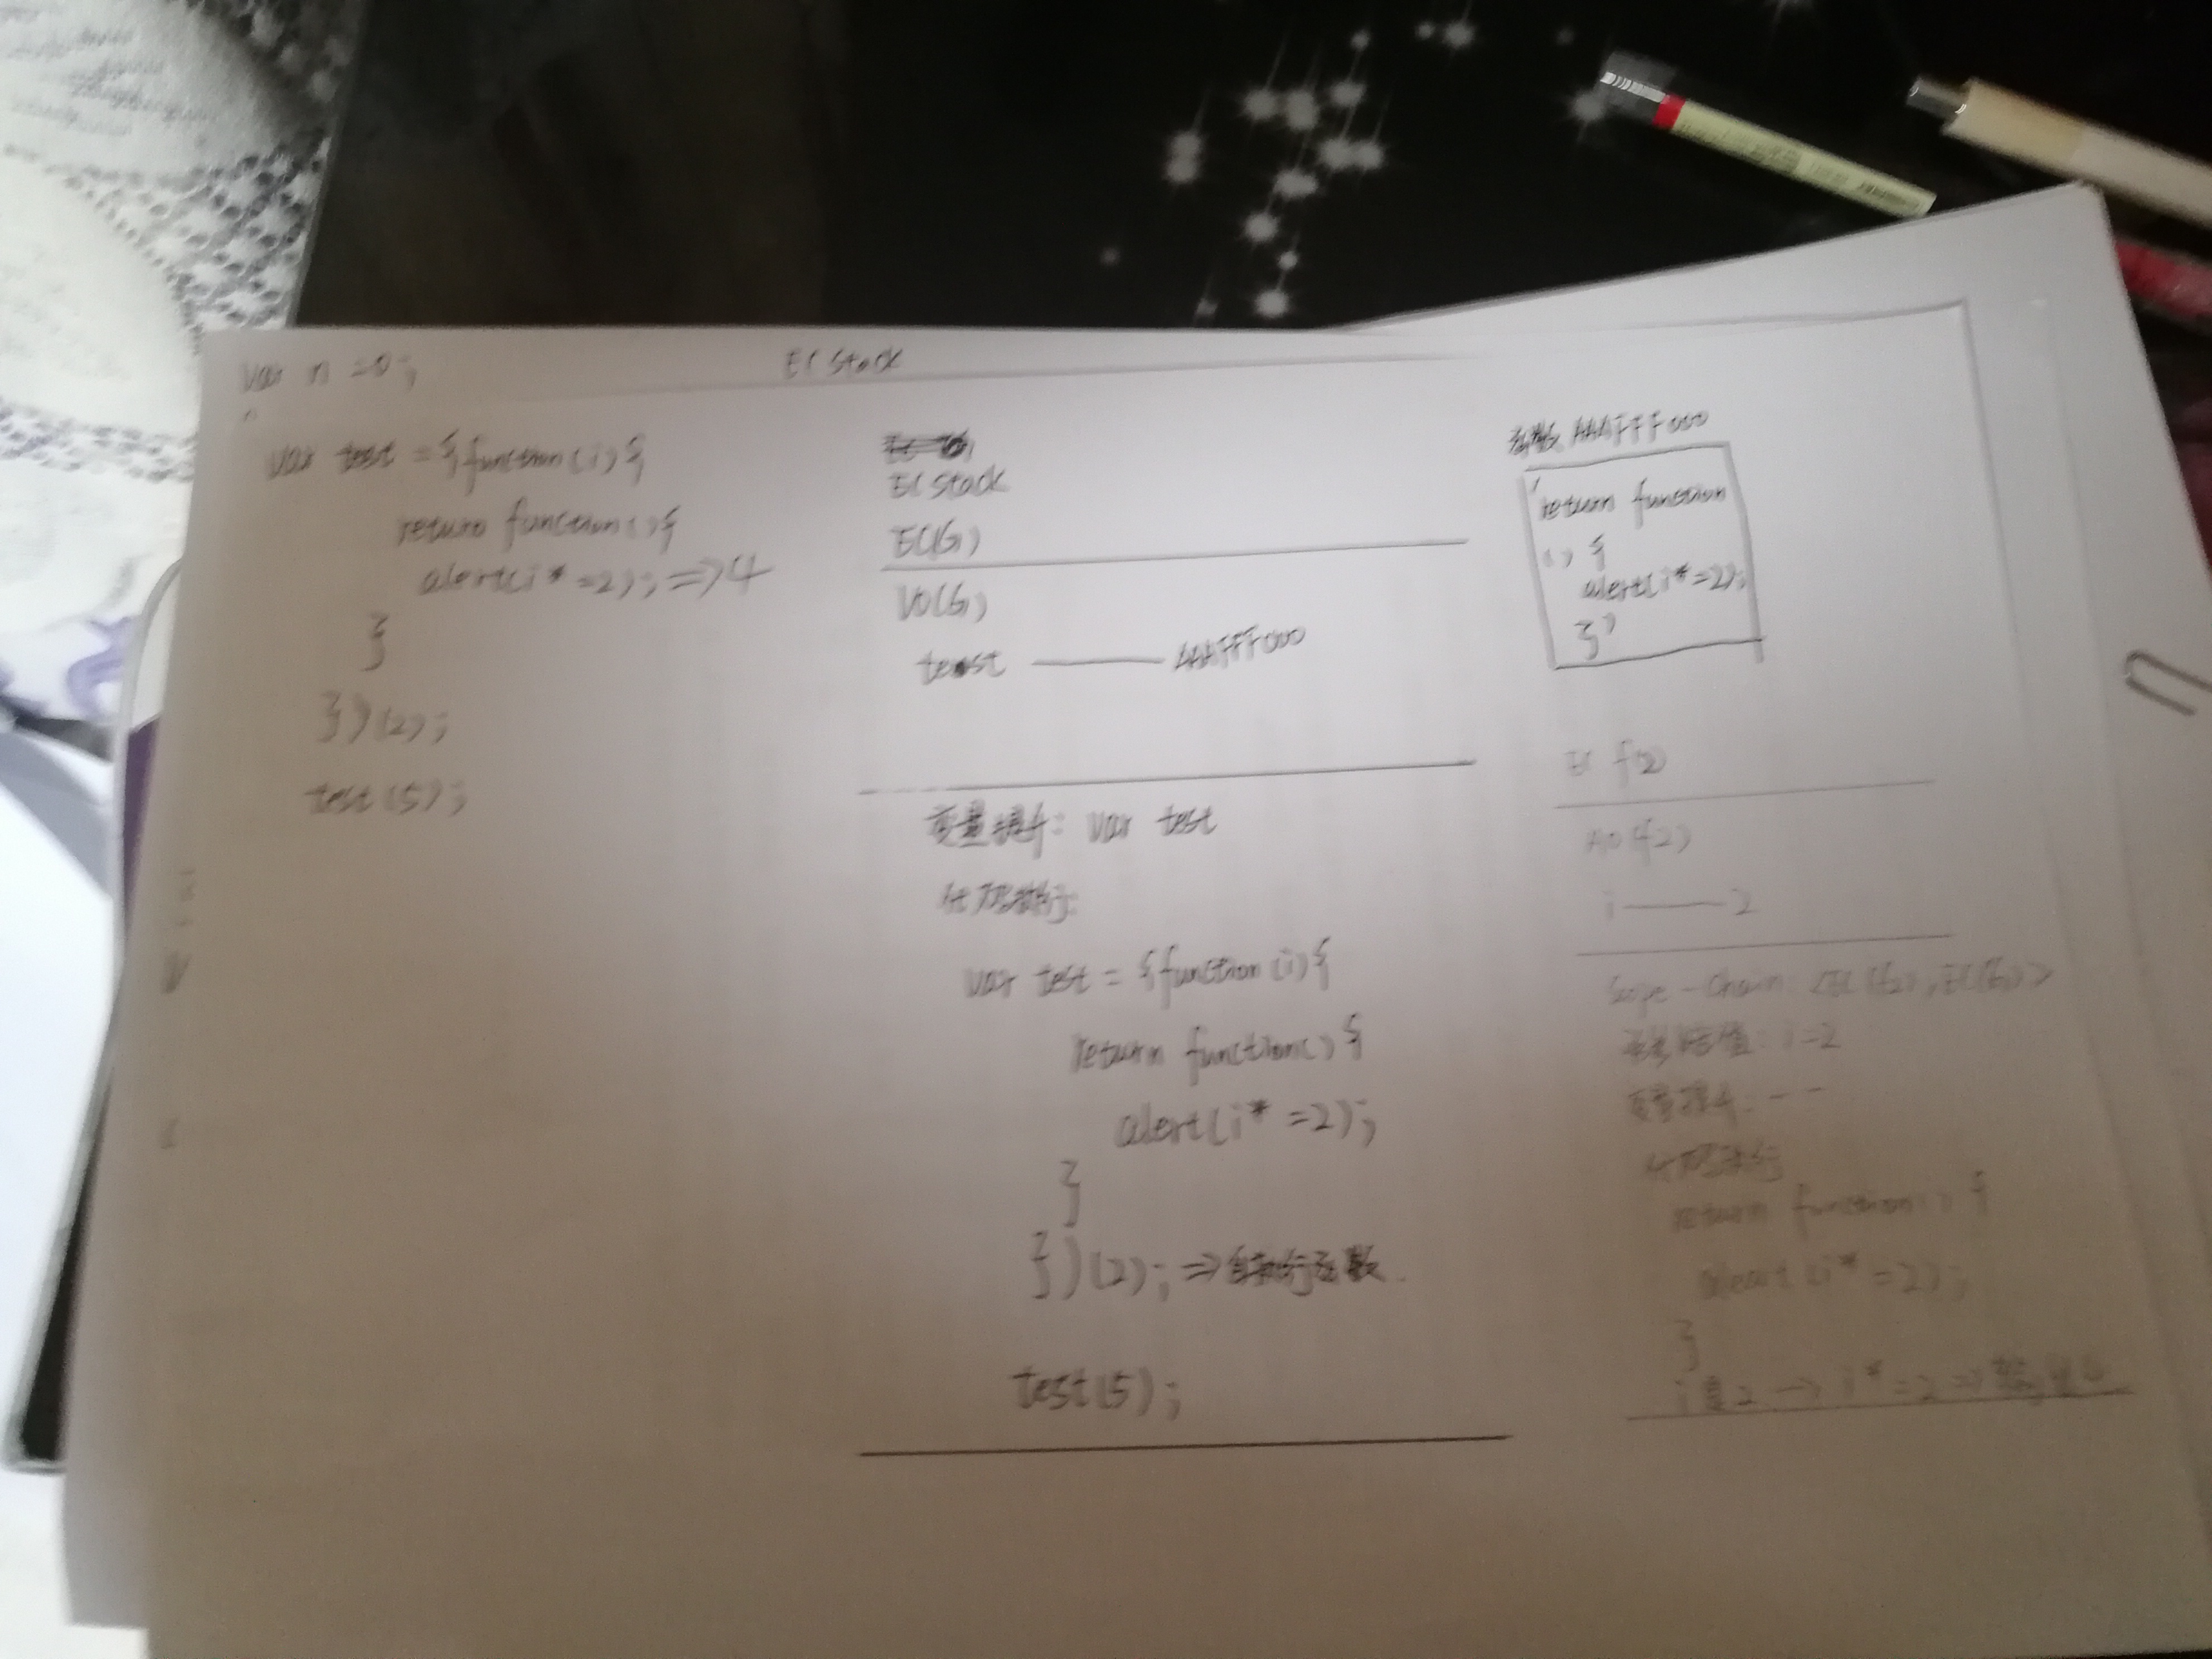 var n = 0;
var test = {function(i){
return function(){
alert(i* =2); => 4
}
})(2);
test(5);
EC Stack
EC Stack
EC(G)
VO(G)
test —— AAAFFF000
变量提升: var test
代码执行:
var test = {function(i){
return function(){
alert(i* =2);
}
})(2); => 自执行函数
test(5);
函数 AAAFFF000
return function
() {
alert(i* =2);
}
EC f(2)
AO f(2)
i —— 2
Scope-Chain: <EC(f2), EC(G)>
i=2
变量提升: --
代码执行
return function() {
aleart(i* =2);
}
i是2 → i* =2 =>